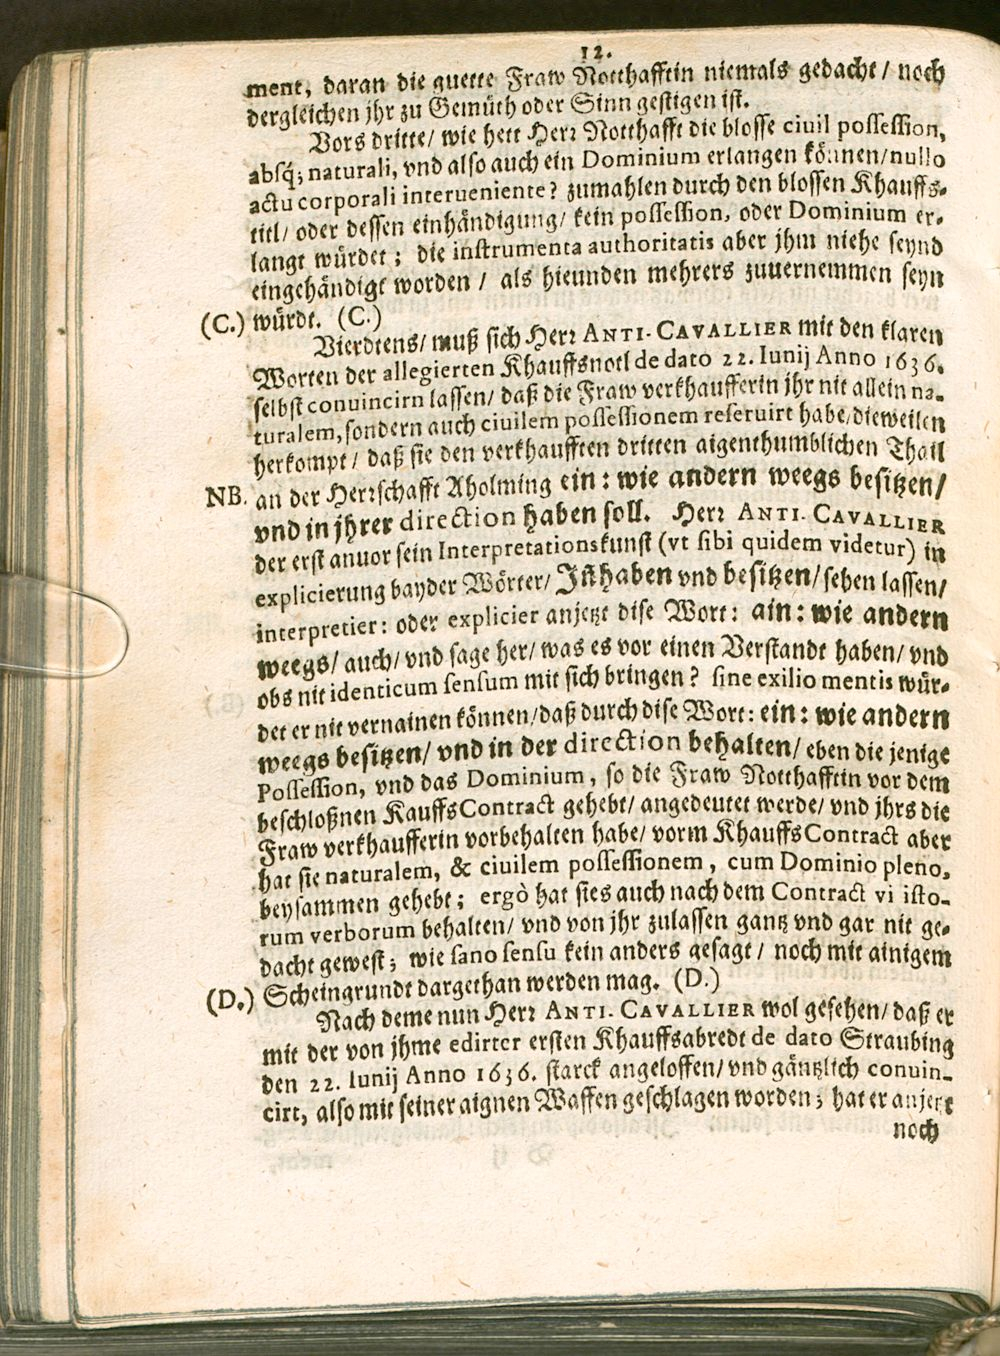 12.
ment, daran die guette Fraw Notthafftin niemals gedacht / noch
dergleichen jhr zu Gemüth oder Sinn gestigen ist.
Vors dritte / wie hett Herr Notthafft die blosse ciuil possession,
absq́; naturali, vnd also auch ein Dominium erlangen können / nullo
actu corporali interueniente? zumahlen durch den blossen Khauffs-
titl / oder dessen einhändigung / kein possession, oder Dominium er-
langt würdet ; die instrumenta authoritatis aber jhm niehe seynd
eingehändigt worden / als hieunden mehrers zuuernemmen seyn
(C.) würdt. (C.)
Vierdtens / muß sich Herr ANTI-CAVALLIER mit den klaren
Worten der allegierten Khauffsnotl de dato 22. Iunij Anno 1636.
selbst conuincirn lassen / daß die Fraw verkhaufferin jhr nit allein na-
turalem, sondern auch ciuilem possessionem reseruirt habe / dieweilen
herkompt / daß sie den verkhaufften dritten aigenthumblichen Thail
NB. an der Herrschafft Aholming ein : wie andern weegs besitzen /
vnd in jhrer direction haben soll. Herr ANTI-CAVALLIER
der erst anuor sein Interpretationskunst (vt sibi quidem videtur) in
explicierung bayder Wörter / Jñhaben vnd besitzen / sehen lassen /
interpretier : oder explicier anjetzt dise Wort : ain : wie andern
weegs / auch / vnd sage her / was es vor einen Verstandt haben / vnd
obs nit identicum sensum mit sich bringen ? sine exilio mentis wür-
det er nit vernainen können / daß durch dise Wort : ein : wie andern
weegs besitzen / vnd in der direction behalten / eben die jenige
Possession, vnd das Dominium, so die Fraw Notthafftin vor dem
beschloßnen KauffsContract gehebt / angedeutet werde / vnd jhrs die
Fraw verkhaufferin vorbehalten habe / vorm KhauffsContract aber
hat sie naturalem, & ciuilem possessionem, cum Dominio pleno,
beysammen gehebt ; ergò hat sies auch nach dem Contract vi isto-
rum verborum behalten / vnd von jhr zulassen gantz vnd gar nit ge-
dacht gewest ; wie sano sensu kein anders gesagt / noch mit ainigem
(D.) Scheingrundt dargethan werden mag. (D.)
Nach deme nun Herr ANTI-CAVALLIER wol gesehen / daß er
mit der von jhme edirter ersten Khauffsabredt de dato Straubing
den 22. Iunij Anno 1636. starck angeloffen / vnd gäntzlich conuin-
cirt, also mit seiner aignen Waffen geschlagen worden ; hat er anjetzt
noch